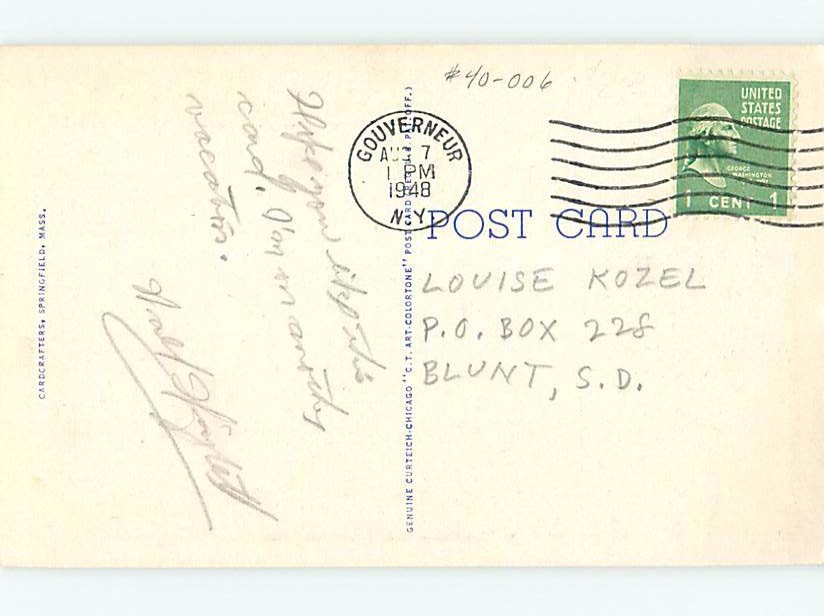 #40-006
GOUVERNEUR
AUG 7
1 PM
1948
N.Y.
UNITED
STATES
POSTAGE
GEORGE
WASHINGTON
1 CENT 1
POST CARD
LOUISE KOZEL
P.O. BOX 228
BLUNT, S.D.
Hope you like this
card. I'm on another
vacation.
Walt
CARDCRAFTERS, SPRINGFIELD, MASS.
GENUINE CURTEICH-CHICAGO "C.T. ART-COLORTONE" POST CARD (REG. U.S. PAT. OFF.)